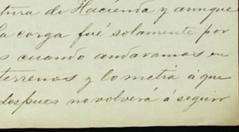 tura de Hacienda y aunque
la corga fué solamente por
s cuando andaramos en
terrenos y lo metiá á que
despues no volverá á seguir